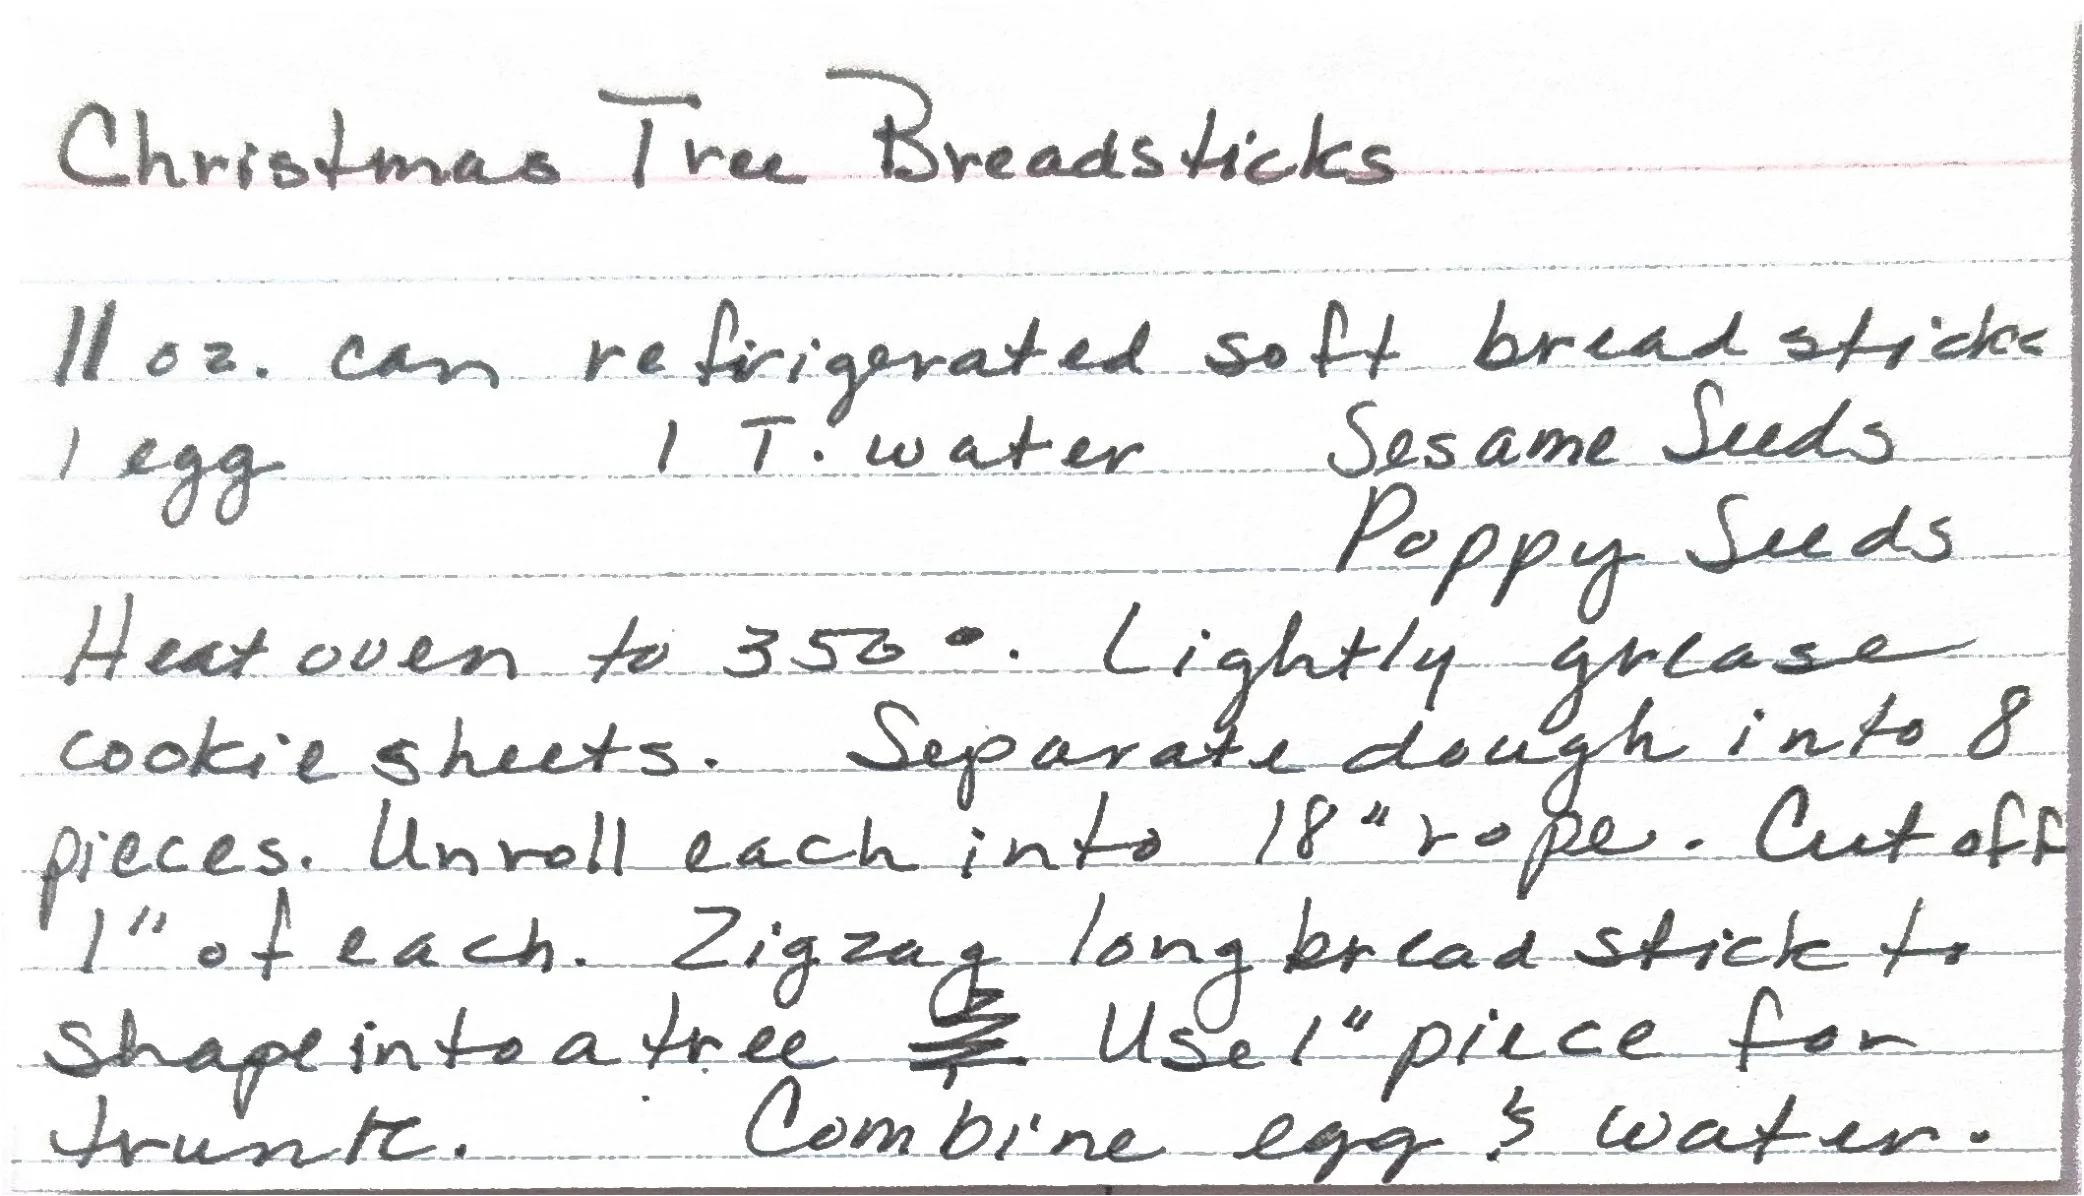 Christmas Tree Breadsticks
11 oz. can refrigerated soft bread sticks
1 egg 1 T. water Sesame Seeds
Poppy Seeds
Heat oven to 350°. Lightly grease
cookie sheets. Separate dough into 8
pieces. Unroll each into 18" rope. Cut off
1" of each. Zigzag long bread stick to
shape into a tree Use 1" piece for
trunk. Combine egg & water.